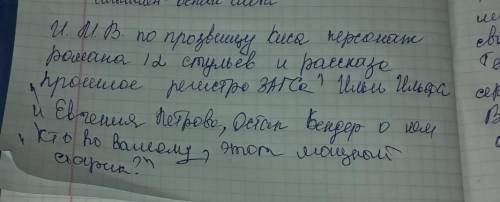 И. М В по прозвищу Киса персонаж
романа 12 стульев и рассказа
"Прошлое регистро ЗАГСа" Ильи Ильфа
и Евгения Петрова, Остап Бендер о нем
"Кто по вашему, этот мощный
старик?"